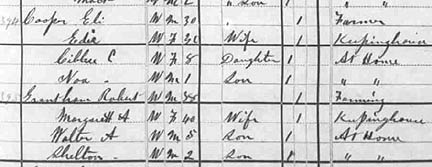 " Son
394 Cooper Eli W M 30 1 Farmer
Edie W F 32 Wife 1 Keepinghouse
W F 8 Daughter 1 At Home
Noa - W M 1 Son 1 " "
395 Grantham Robert W M 38 1 Farming
Margarett A W F 40 Wife 1 Keepinghouse
Walter A W M 5 Son 1 At Home
Shelton - W M 2 Son 1 " "